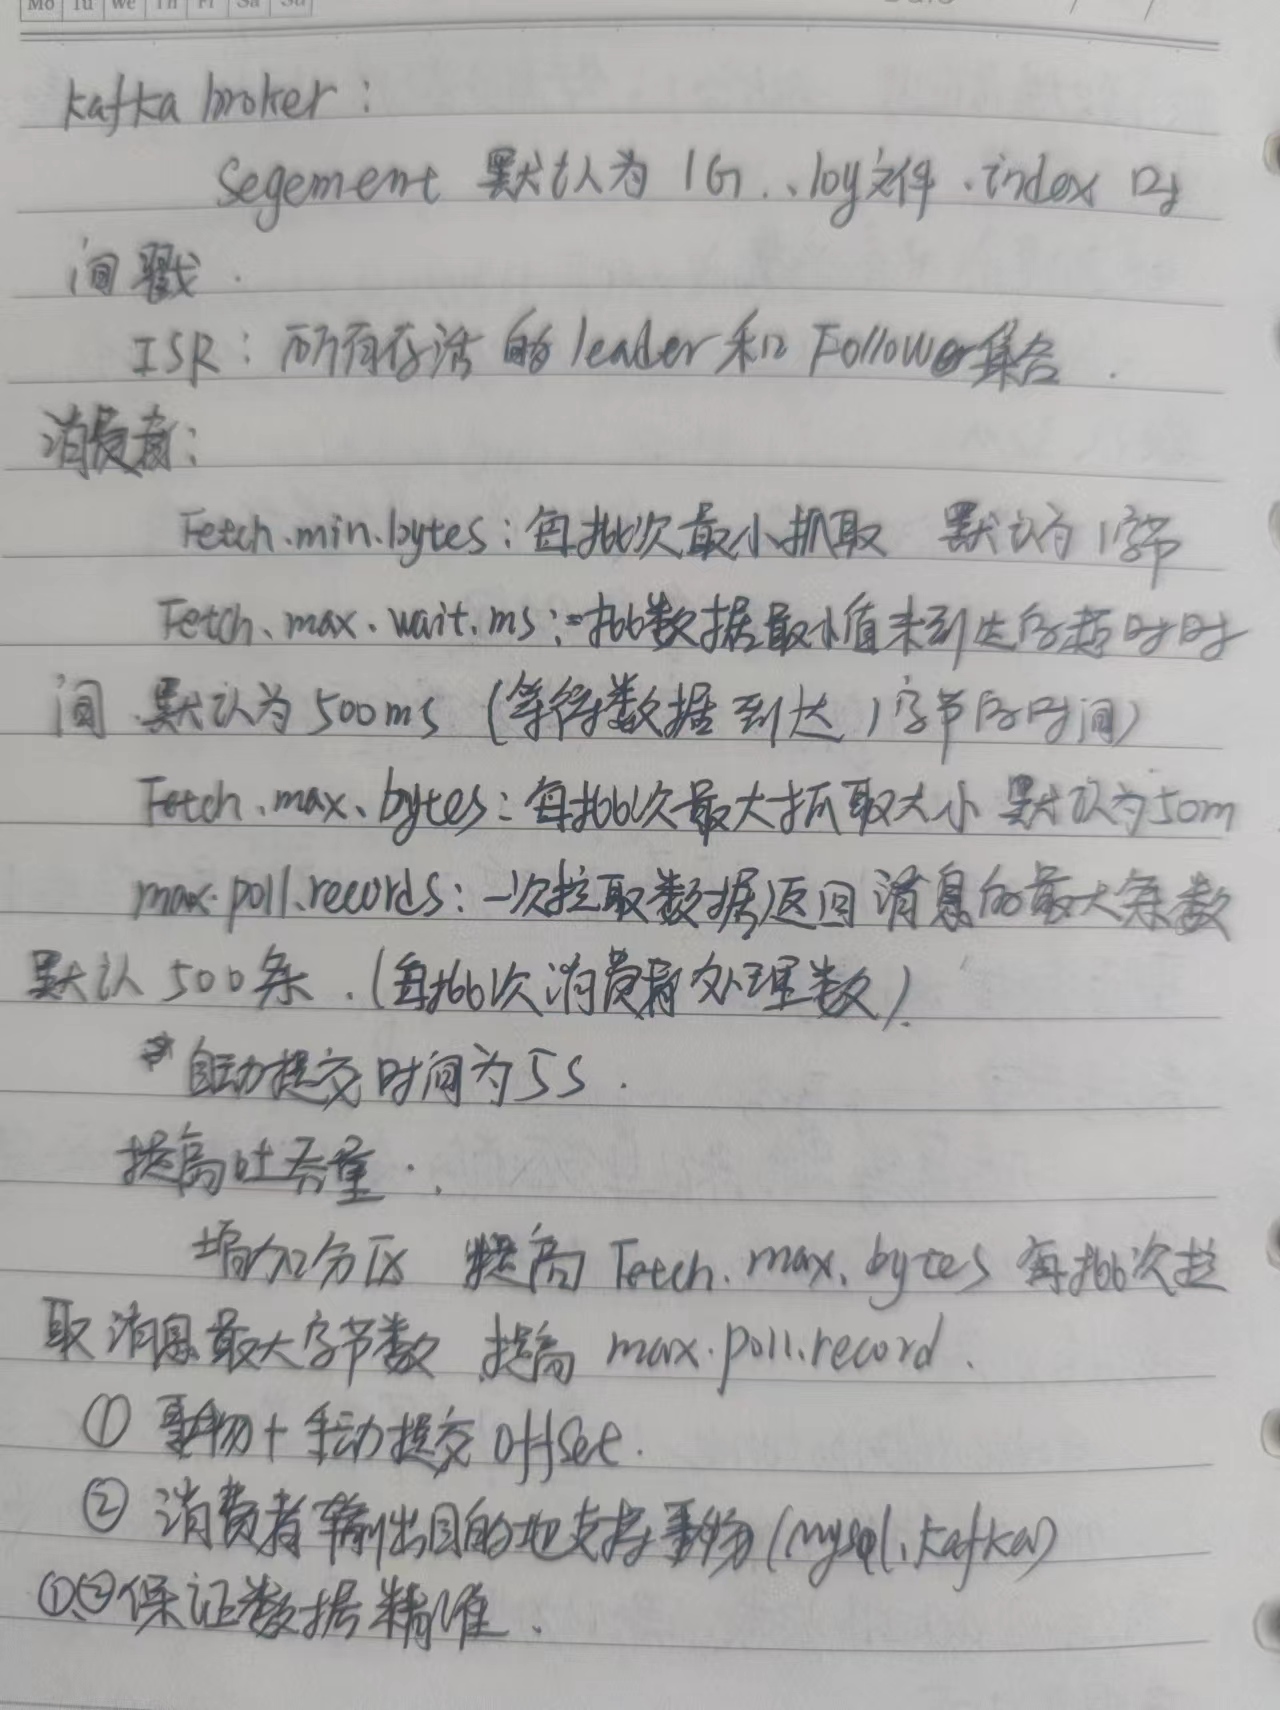 Mo Tu We Th Fr Sa Su
kafka broker：
Segement 默认为 1G . .log文件 .index 时
间戳 .
ISR：所有存活的leader和Follower集合 .
消费者：
Fetch.min.bytes：每批次最小抓取 默认为1字节
Fetch.max.wait.ms：一批数据最小值未到达的超时时
间 .默认为500ms （等待数据到达1字节的时间）
Fetch.max.bytes：每批次最大抓取大小 默认为50m
max.poll.records：一次拉取数据返回消息的最大条数
默认500条 .（每批次消费者处理数）.
* 自动提交时间为5s .
提高吐吞量 .
增加分区 提高Fetch.max.bytes 每批次拉
取消息最大字节数 提高 max.poll.record .
① 事物+手动提交 offset .
② 消费者输出目的地支持事物(mysql、kafka)
①②保证数据精准 .